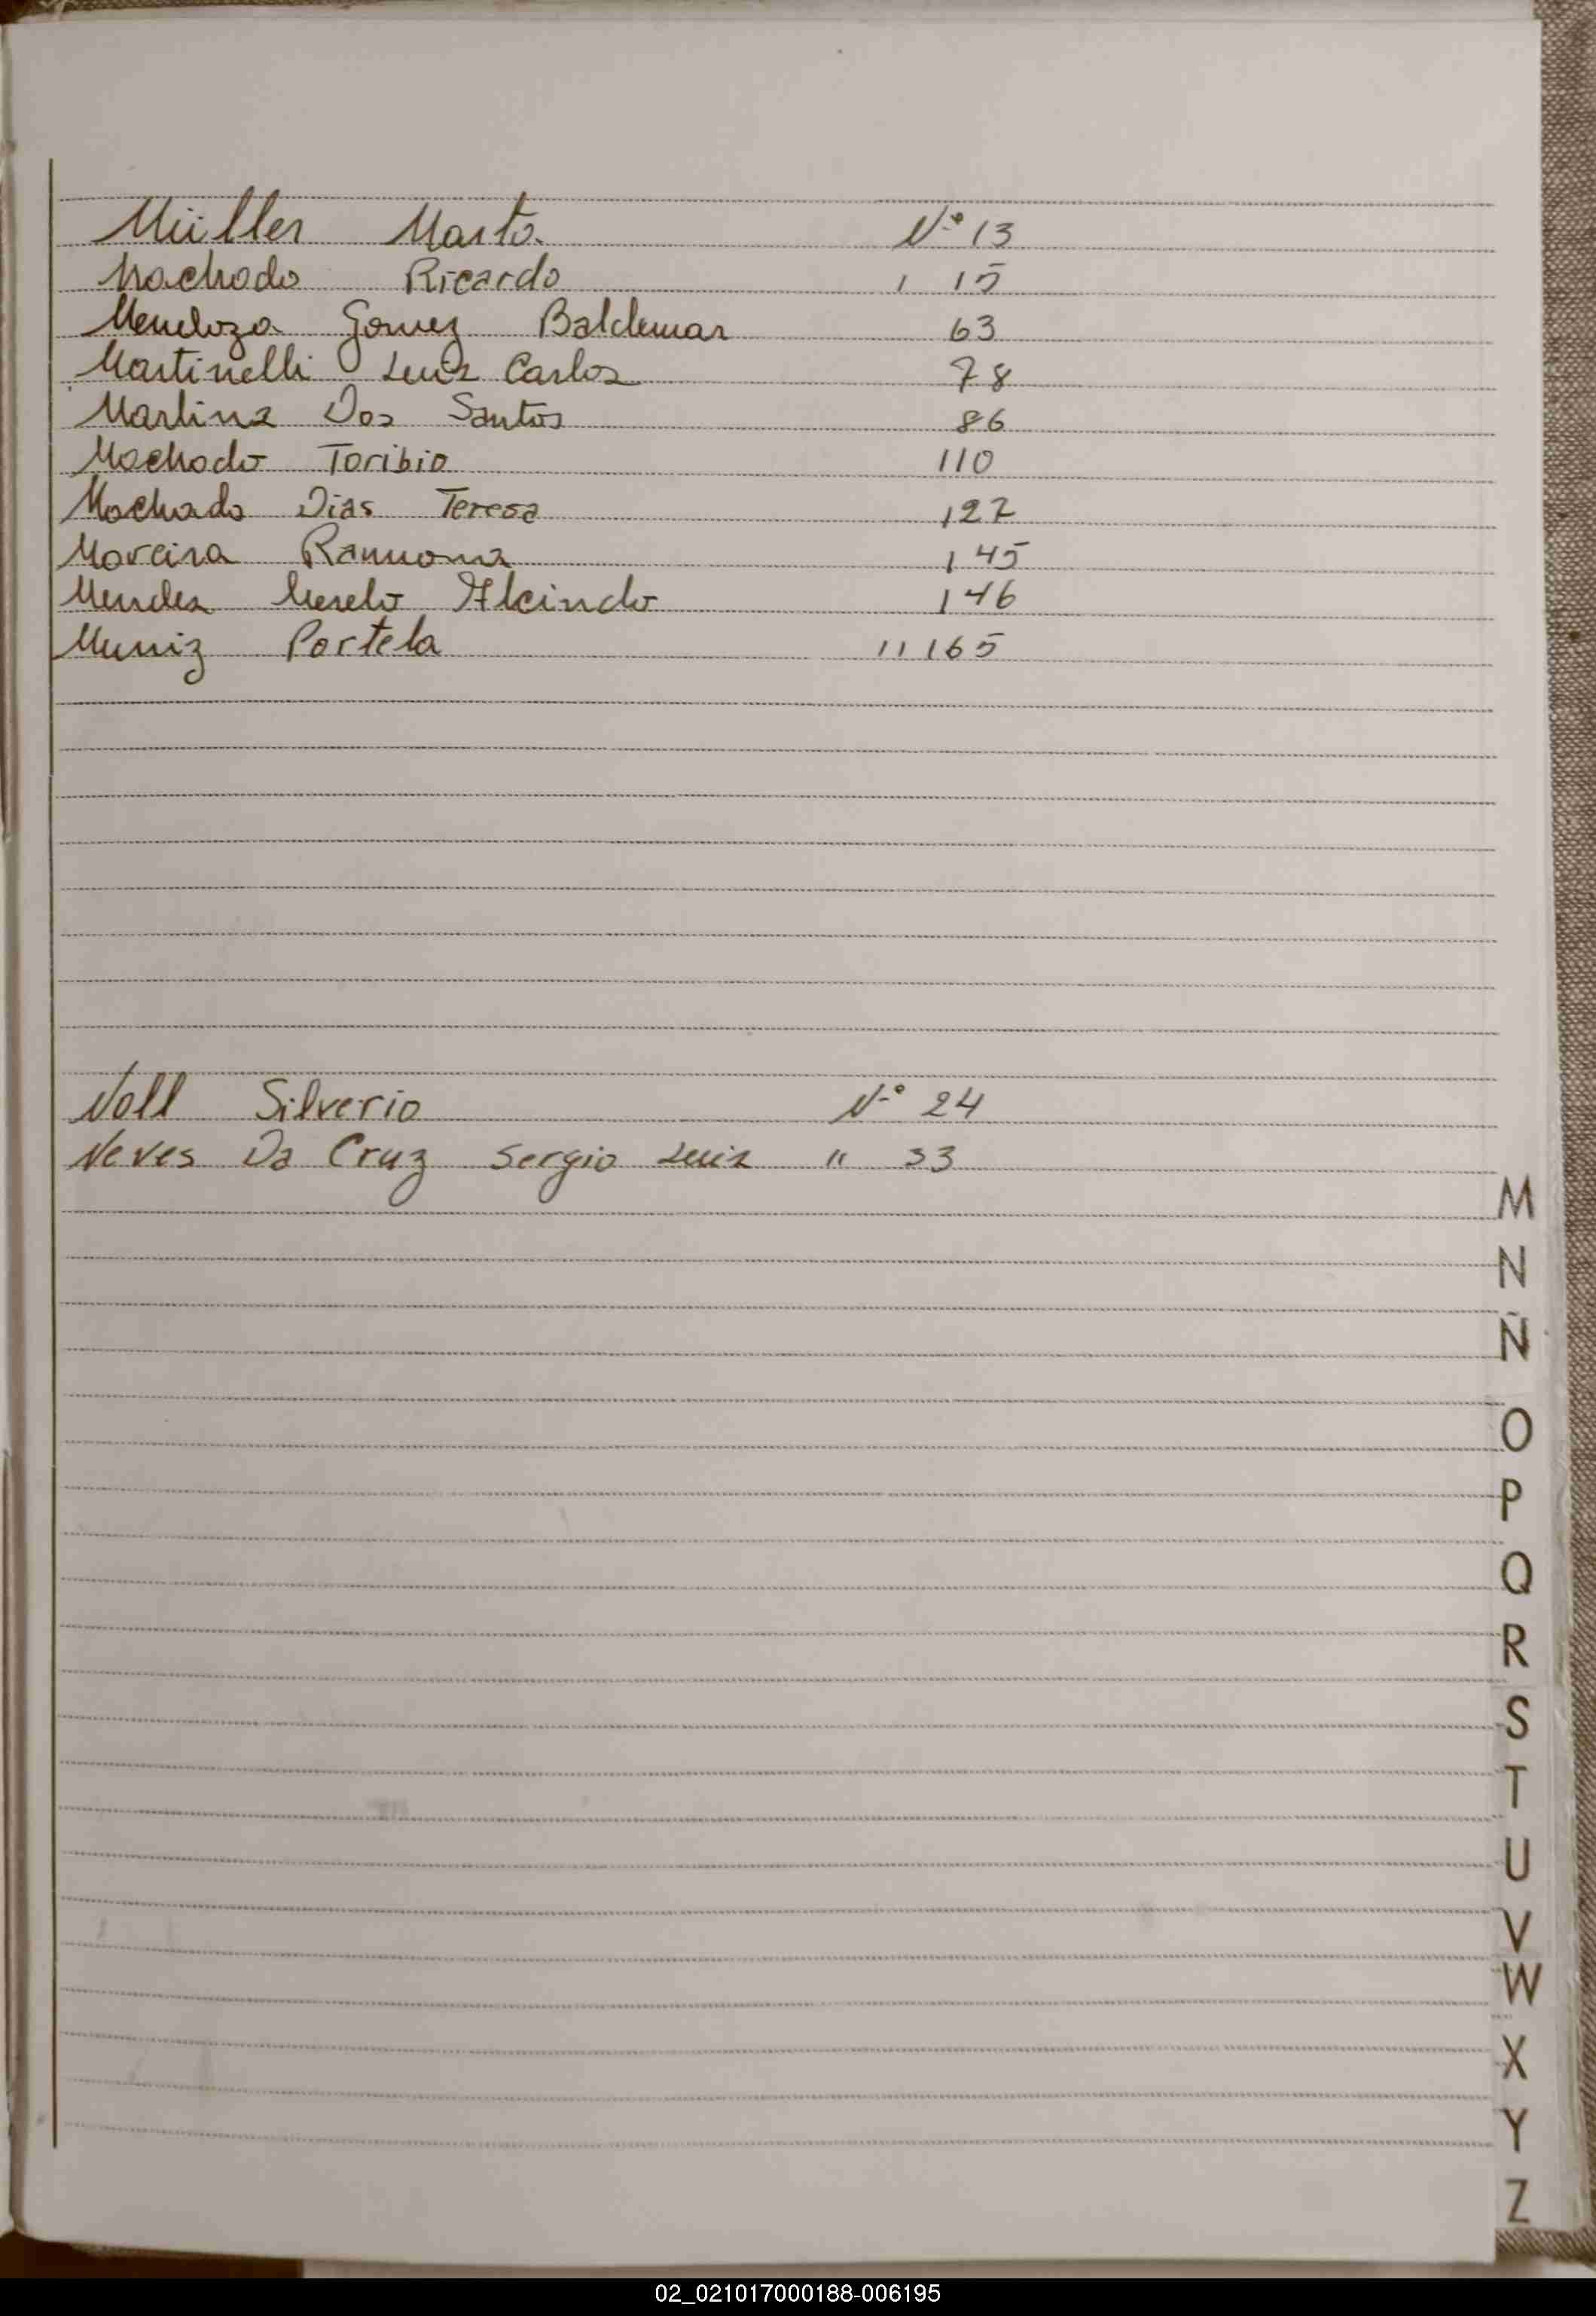 Müller Marta. Nº 13
Machado Ricardo 1 15
Mendoza Gomez Baldemar 63
Martinelli Luis Carlos 78
Martins Dos Santos 86
Machado Toribio 110
Machado Dias Teresa 127
Moreira Ramona 145
Mendes Alcindo 146
Muniz Portela 11 165
Noll Silverio Nº 24
Neves Da Cruz Sergio Luis " 33
M
N
Ñ
O
P
Q
R
S
T
U
V
W
X
Y
Z
02_021017000188-006195